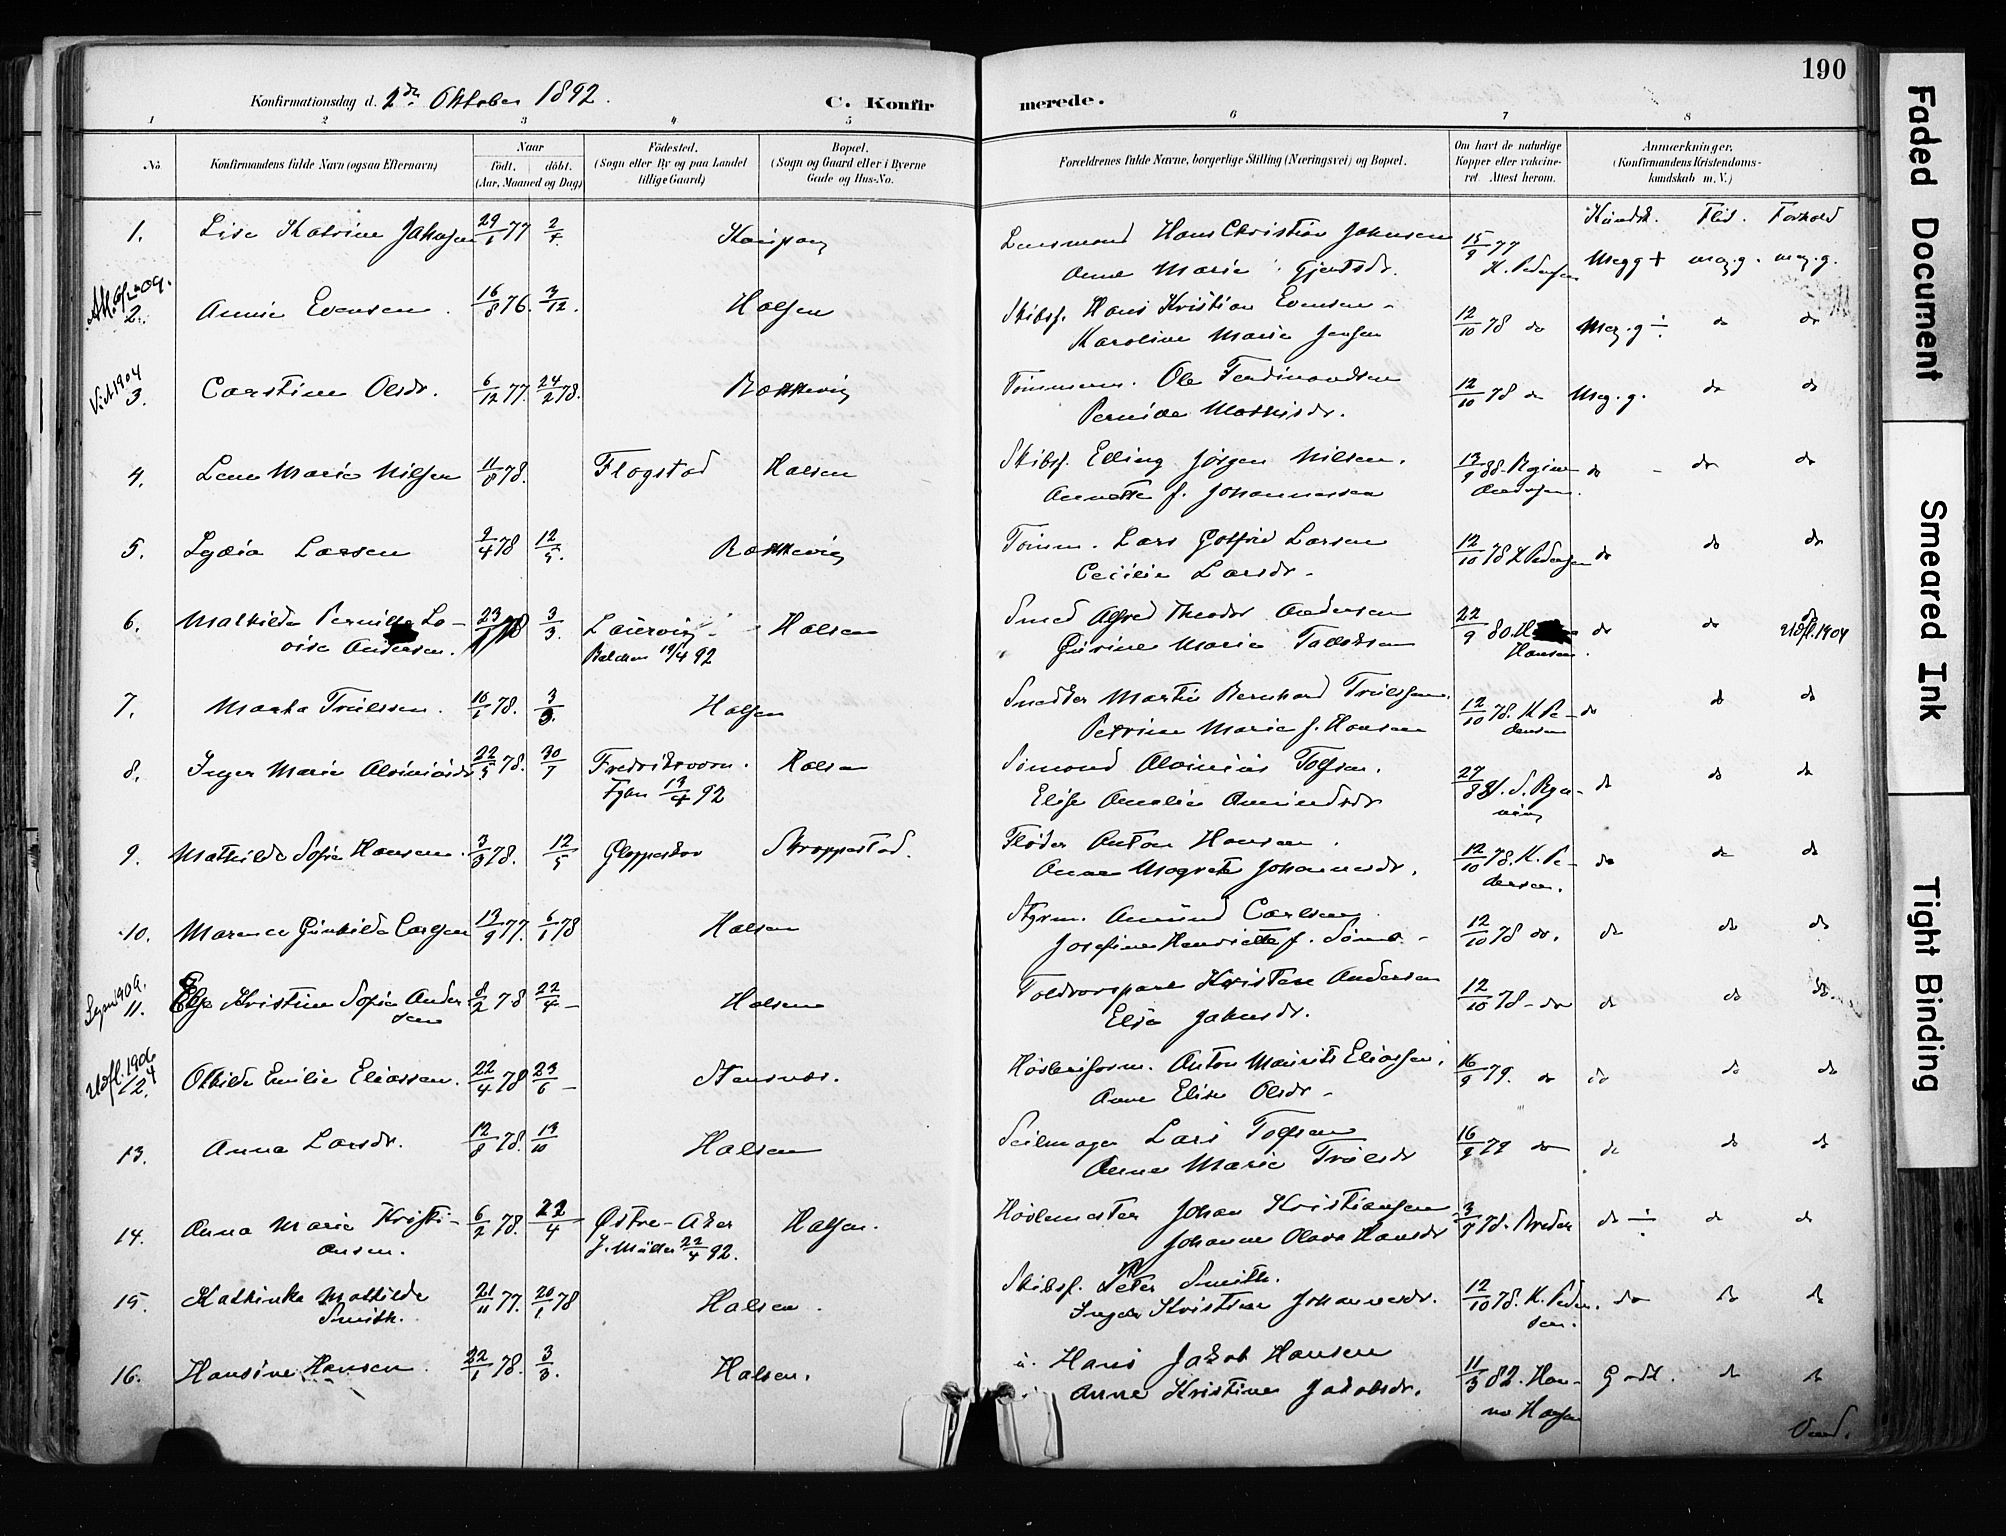 190
Konfirmationsdag d. 2den Oktober 1892.
C. Konfirmerede.
1 2 3 4 5 6 7 8
No.
Konfirmandens fulde Navn (ogsaa Efternavn)
Naar
födt. döbt.
(Aar, Maaned og Dag)
Födested.
(Sogn eller By og paa Landet
tillige Gaard)
Bopæl.
(Sogn og Gaard eller i Byerne
Gade og Hus-No.
Forældrenes fulde Navne, borgerlige Stilling (Næringsvei) og Bopæl.
Om havt de naturlige
Kopper eller vakcine-
ret. Attest herom.
Anmærkninger.
(Konfirmandens Kristendoms-
kundskab m. V.)
Kundsk. Flid. Forhold
1. Lise Katrine Jakobsen 29/1 77 2/4
Hans Christian
Anne Marie Gjertsdr.
15/9 77
K. Pedersen
Megg + meg.g. meg.g.
2. Annie Evensen 16/8 76. 3/12. Halsen
Skibsf. Hans Kristian Evensen
Karoline Marie Jensen
12/10 78 do Meg.g ÷ do do
Vid 1904
3. Carstine Olsdr. 6/12 77. 24/2 78. Rækkevig
Tömmerm. Ole Ferdinandsen
Pernille Mathisdr.
12/10 78 do Meg.g. do do
4. Lene Marie Nilsen 11/8 78. Flogstad Halsen
Skibsf. Elling Jörgen Nilsen.
Annette f. Johannessen
do do do
5. Lydia Larsen 2/4 78 12/5. Rækkevig
Tömm. Lars Gotfred Larsen
Cecilie Larsdr.
12/10 78 K Pedersen do do do
6. Mathilde Pernille Lo-
vise Andersen. 23/1 78 3/3. Laurvig Halsen
Balchen 19/4 92
Smed Alfred Theodor Andersen
Gurine Marie
22/9 80. H
Hansen.
do do do
Udfl. 1904
7. Marta Trulssen. 16/1 78. 3/3. Halsen
Snedker Martin Bernhard Trulssen.
Petrine Marie f. Hansen
12/10 78. K Pe-
dersen
do do do
8. Inger Marie 22/5 78. 30/7 Fredriksværn. Halsen
13/4 92
Sömand Tollefsen.
Elise Amalie Amundsdr
do do do
9. Mathilde Sofie Hansen. 3/3 78. 12/5 Gloppeskov Skroppestad.
Flöder Anton Hansen.
Anne Magrete Johannesdr.
12/10 78. K. Pe-
dersen.
do do do
10. Maren Gunhilde Carlsen 19/9 77. 6/1 78 Halsen
Styrm. Amund Carlsen.
Josefine Henriette f.
12/10 78 do. do do do
11. Else Kristine Sofie Ander
sen 8/2 78 22/4 Halsen
Toldvorspeni Kristen Andersen
Elise Jakobsdr.
12/10 78 do do do do
Udfl. 1906
12. Othilde Emilie Eliassen. 22/4 78 23/6 Stensnæs.
Anton Maurits Eliassen.
Anne Elise Olsdr
16/9 79. do do do do
13. Anna Larsdr. 12/8 78. 13/10 Halsen
Seilmager Lars Tollefsen
Anne Marie Trulsdr
16/9 79 do do do do
14. Anna Marie Kristi-
ansen. 6/2 78. 22/4 Østre-Aker Halsen.
J. Müller 22/4 92.
Hövlemester Johan Kristiansen
Johanne Olava Hansdr
3/7 78. do ÷ do do
15. Kathinka Mathilde
Smith. 21/11 77. 20/1 78 Halsen.
Skibsf. Peter Smith.
Kristine Johannesdr.
12/10 78. K. Peder
sen.
do do do
16. Hansine Hansen. 22/1 78. 3/3. Halsen.
u. Hans Jakob Hansen
Anne Kristine Jakobsdr.
11/3 82. Han-
na Hansen
Godt. do do
Vend.
Faded Document
Smeared Ink
Tight Binding